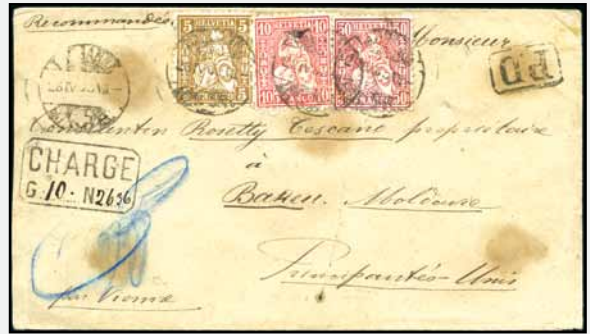 Recommandée.
5 HELVETIA 5
10 HELVETIA 10
50 HELVETIA 50
Monsieur
PD
Constantin Rosetty Tescano propritaire
à
CHARGE
G. 10. N2656
Moldavie
Principautés-Unis
par Vienne